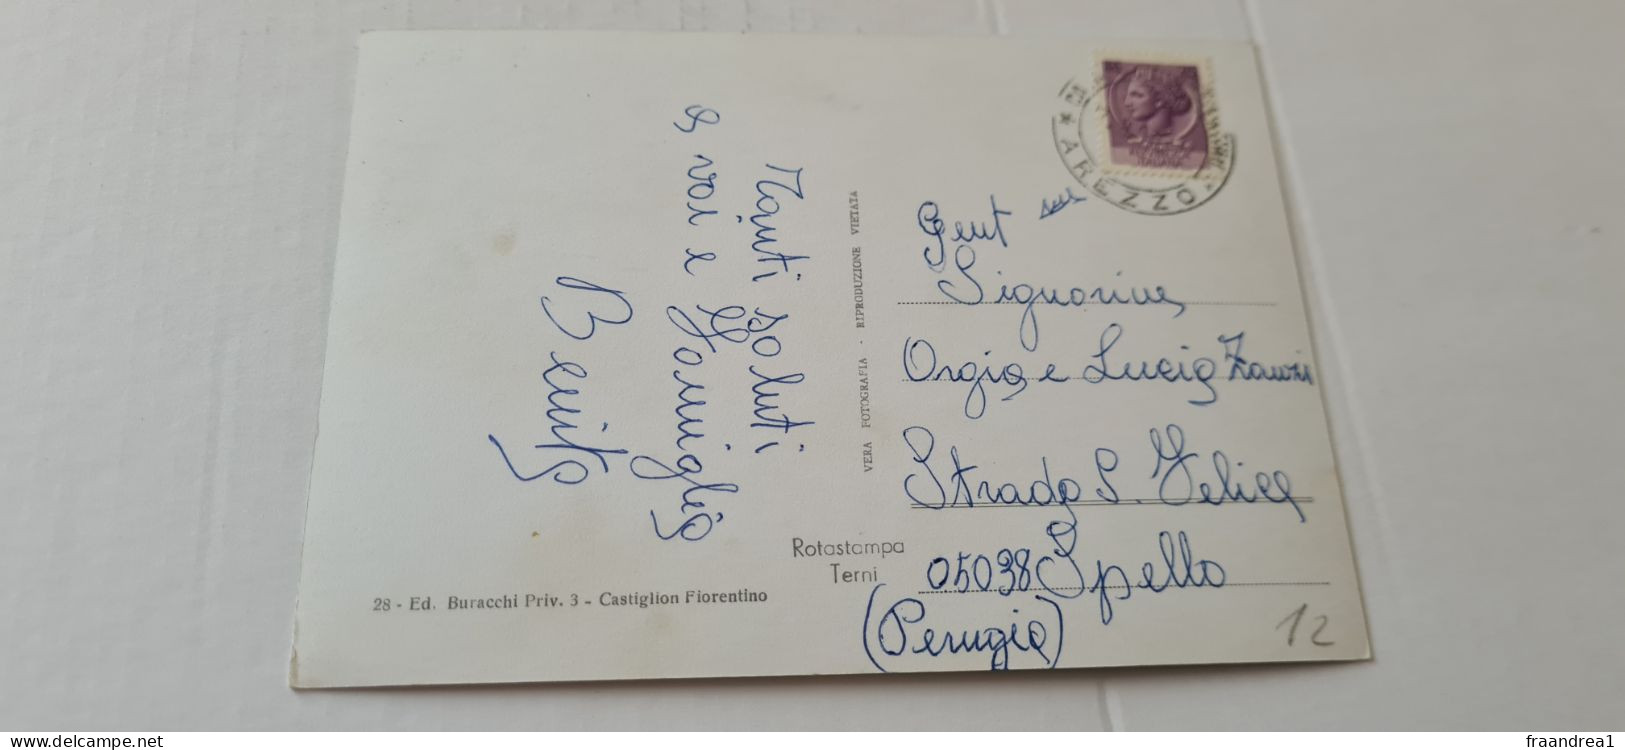 Tanti saluti
a voi e Famiglia
Benito
VERA FOTOGRAFIA - RIPRODUZIONE VIETATA
AREZZO
Gent
Signorine
Orgia e Lucia Zanzi
Strada S. Felice
05038 Spello
(Perugia)
Rotastampa
Terni
28 - Ed. Buracchi Priv. 3 - Castiglion Fiorentino
12
delcampe.net
fraandrea1